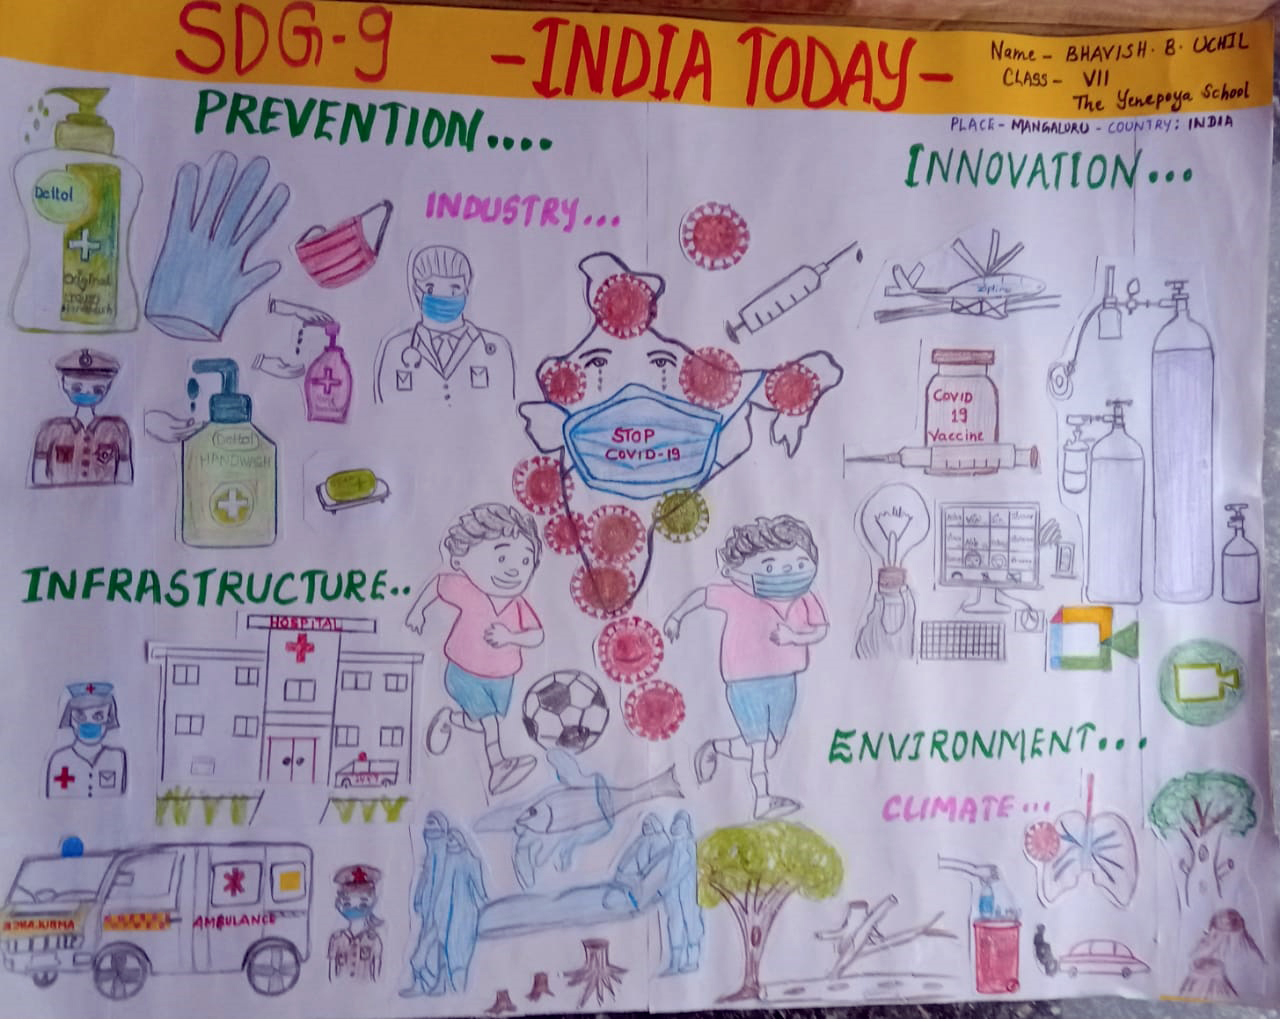 SDG-9
-INDIA TODAY-
Name - BHAVISH. B. UCHIL
CLASS - VII
The Yenepoya School
PLACE - MANGALURU - COUNTRY: INDIA
PREVENTION....
INNOVATION...
INDUSTRY...
Dettol
Original
zipline
COVID
19
Vaccine
STOP
COVID-19
(Dettol)
HANDWASH
INFRASTRUCTURE..
HOSPITAL
ENVIRONMENT...
CLIMATE...
AMBULANCE